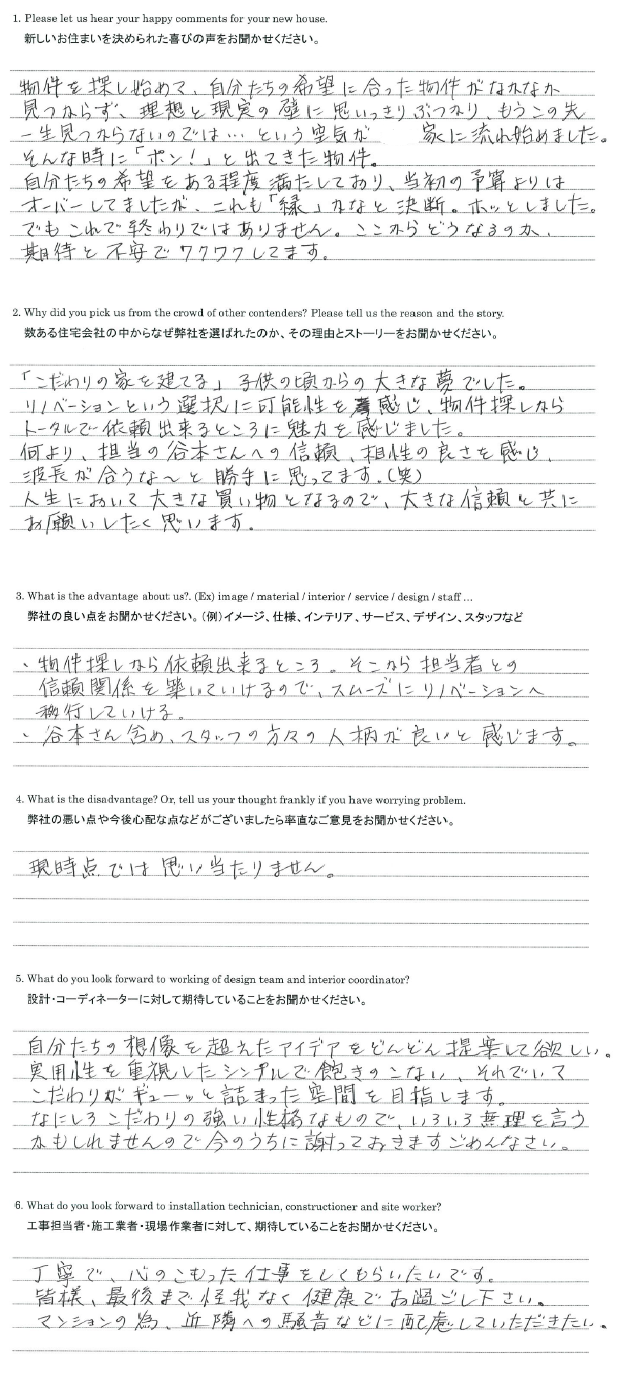 1. Please let us hear your happy comments for your new house.
新しいお住まいを決められた喜びの声をお聞かせください。
物件を探し始めて、自分たちの希望に合った物件がなかなか
見つからず、理想と現実の壁に思いっきりぶつかり、もうこの先
一生見つからないのでは… という空気が 家に流れ始めました。
そんな時に「ポン！」と出てきた物件。
自分たちの希望をある程度満たしており、当初の予算よりは
オーバーしてましたが、これも「縁」かなと決断。ホッとしました。
でもこれで終わりではありません。ここからどうなるのか、
期待と不安でワクワクしてます。
2. Why did you pick us from the crowd of other contenders? Please tell us the reason and the story.
数ある住宅会社の中からなぜ弊社を選ばれたのか、その理由とストーリーをお聞かせください。
「こだわりの家を建てる」子供の頃からの大きな夢でした。
リノベーションという選択に可能性を感じ、物件探しから
トータルで依頼出来るところに魅力を感じました。
何より、担当の谷本さんへの信頼、相性の良さを感じ、
波長が合うな〜と勝手に思ってます。（笑）
人生において大きな買い物となるので、大きな信頼と共に
お願いしたく思います。
3. What is the advantage about us?. (Ex) image / material / interior / service / design / staff ...
弊社の良い点をお聞かせください。（例）イメージ、仕様、インテリア、サービス、デザイン、スタッフなど
、物件探しから依頼出来るところ。そこから担当者との
信頼関係を築いていけるので、スムーズにリノベーションへ
移行していける。
、谷本さん含め、スタッフの方々の人柄が良いと感じます。
4. What is the disadvantage? Or, tell us your thought frankly if you have worrying problem.
弊社の悪い点や今後心配な点などがございましたら率直なご意見をお聞かせください。
現時点では思い当たりません。
5. What do you look forward to working of design team and interior coordinator?
設計・コーディネーターに対して期待していることをお聞かせください。
自分たちの想像を超えたアイデアをどんどん提案して欲しい。
実用性を重視したシンプルで飽きのこない、それでいて
こだわりがギューッと詰まった空間を目指します。
なにしろこだわりの強い性格なもので、いろいろ無理を言う
かもしれませんので今のうちに謝っておきますごめんなさい。
6. What do you look forward to installation technician, constructioner and site worker?
工事担当者・施工業者・現場作業者に対して、期待していることをお聞かせください。
丁寧で、心のこもった仕事をしてもらいたいです。
皆様、最後まで怪我なく健康でお過ごし下さい。
マンションの為、近隣への騒音などに配慮していただきたい。